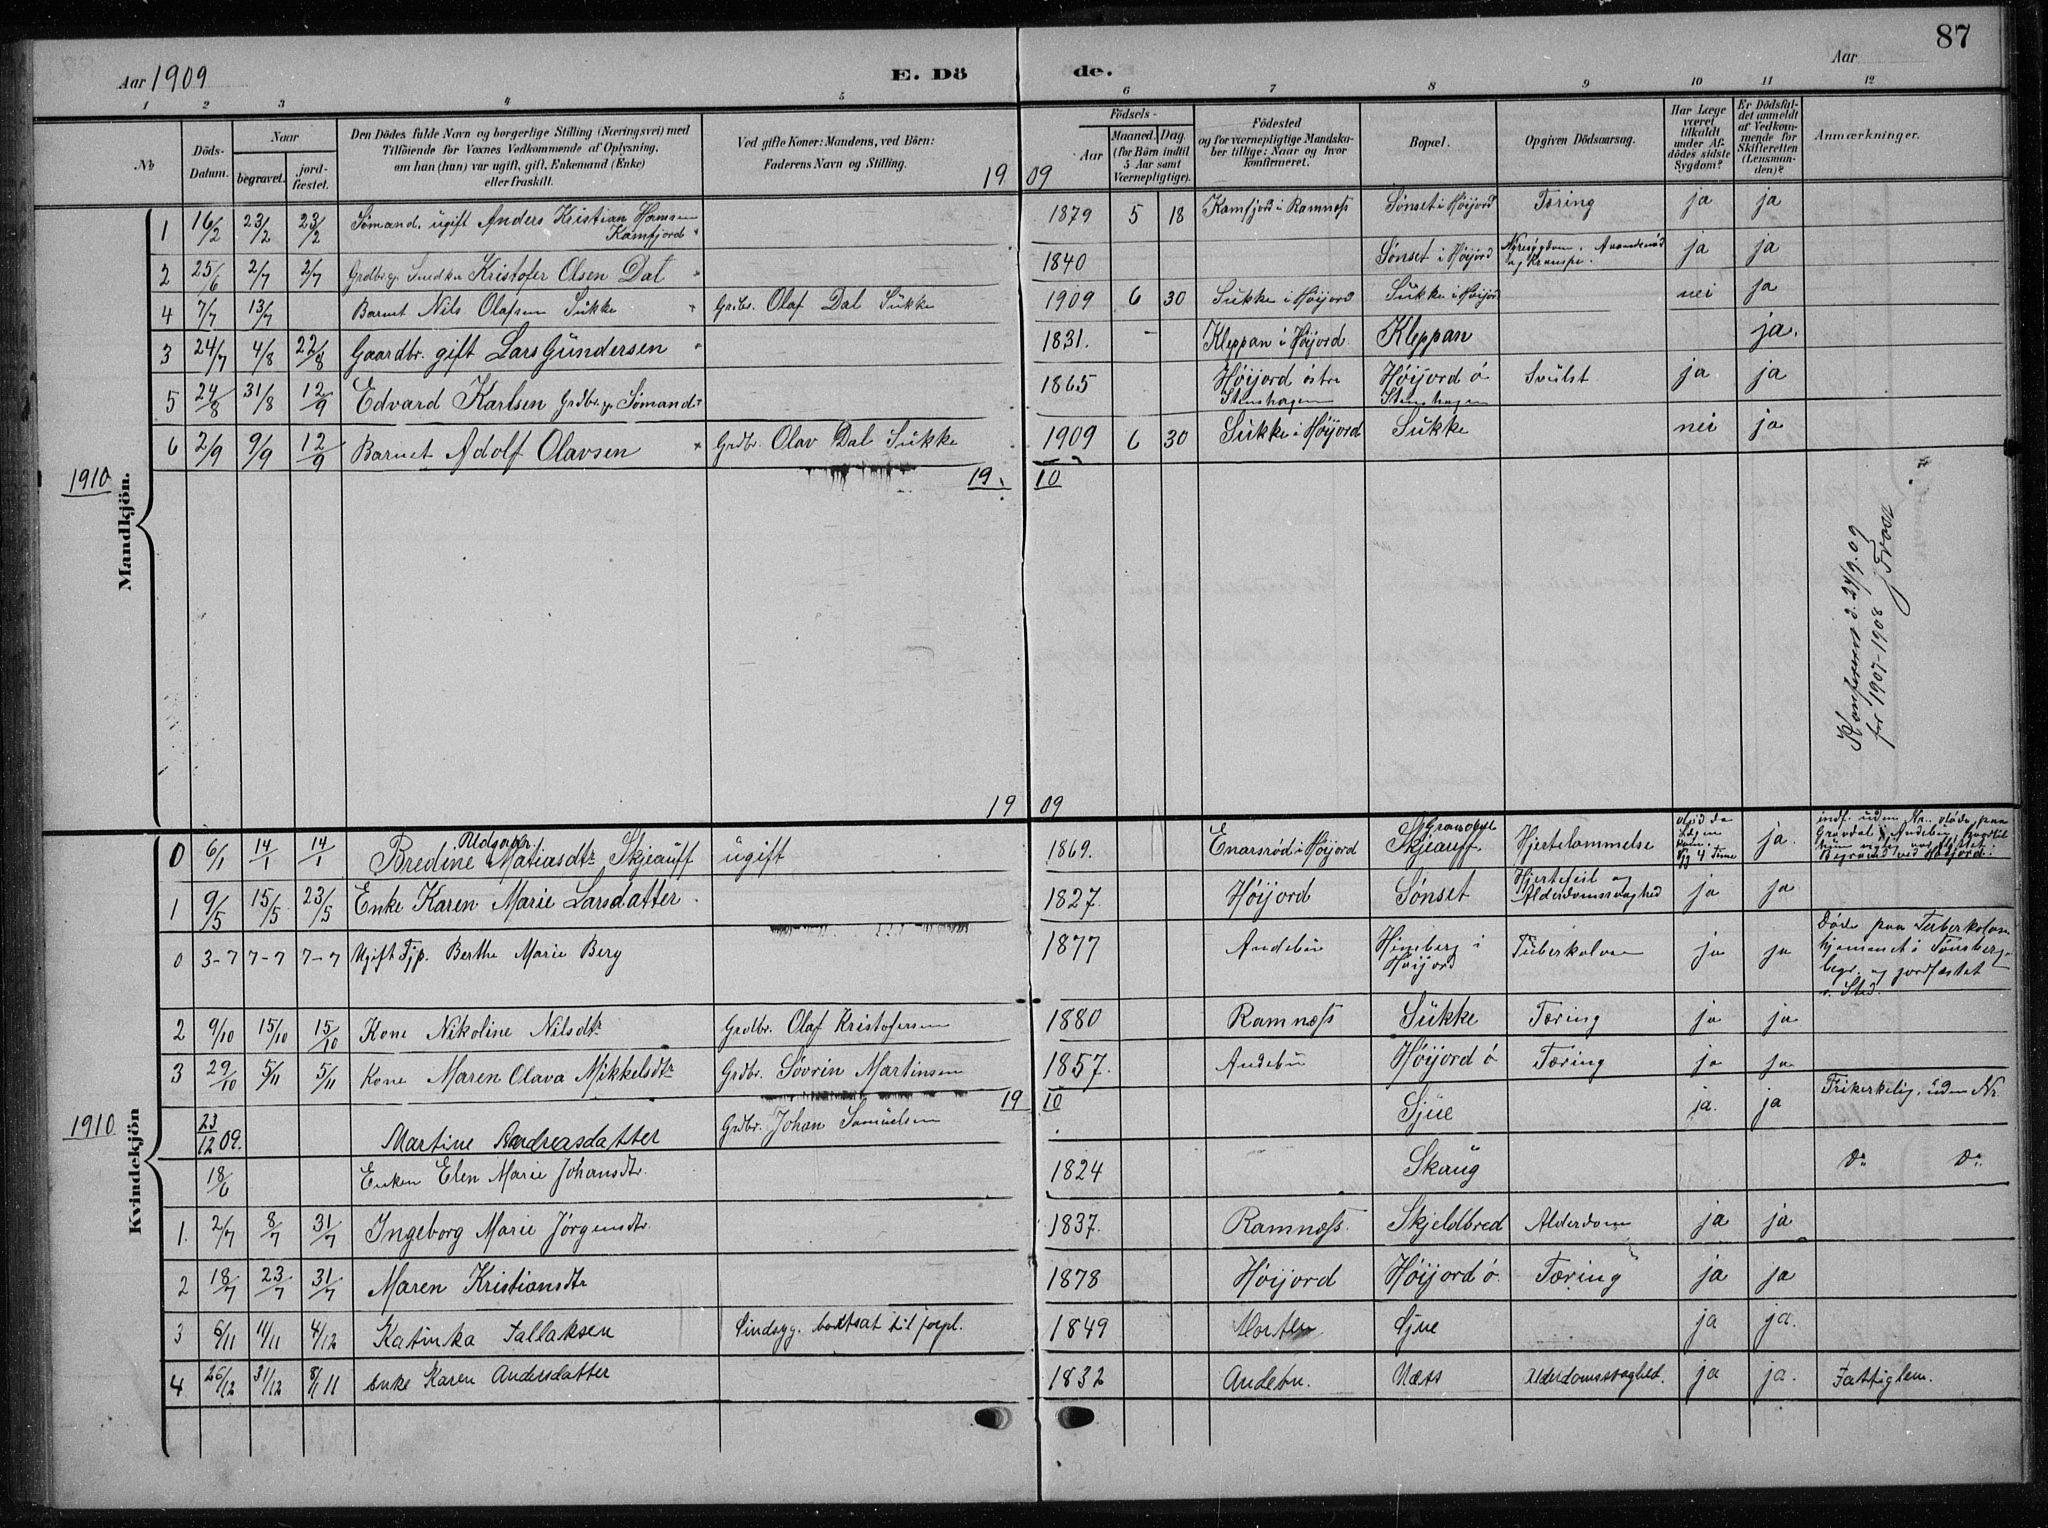 87
Aar 1909
E. Dö
de.
Aar
1 2 3 4 5 6 7 8 9 10 11 12
№
Döds-Datum.
Naar
begravet.
jord-fæstet.
Den Dödes fulde Navn og borgerlige Stilling (Næringsvei) med
Tilföiende for Voxnes Vedkommende af Oplysning,
om han (hun) var ugift, gift, Enkemand (Enke)
eller fraskilt.
Ved gifte Koner: Mandens, ved Börn:
Faderens Navn og Stilling.
Födsels-
Aar
Maaned. Dag.
(for Börn indtil
5 Aar samt
Værnepligtige).
Födested
og for værnepligtige Mandska-
ber tillige: Naar og hvor
konfirmeret.
Bopæl.
Opgiven Dödsaarsag.
Har Læge
været
tilkaldt
under Af-
dødes sidste
Sygdom?
Er Dödsfal-
det anmeldt
af Vedkom-
mende for
Skifteretten
(Lensman-
den)?
Anmærkninger.
19 09
Mandkjön.
1 16/2 23/2 23/2 Sømand, ugift Anders Kristian Hansen Kamfjord 1879 5 18 Kamfjord i Ramnæss Sønset i Høijord Tæring ja ja
2 25/6 2/7 2/7 Grdbr. og Snedker Kristofer Olsen Dal 1840 Sønset i Høijord Nyresygdom, Aandenød og Krampe. ja ja
4 7/7 13/7 Barnet Nils Olafsen Sukke Grbr. Olaf Dal Sukke 1909 6 30 Sukke i Høijord Sukke i Høijord nei ja
3 24/7 4/8 22/8 Gaardbr. gift Lars Gundersen 1831. - Kleppan i Høijord Kleppan ja.
5 24/8 31/8 12/9 Edvard Karlsen Grdbr. og Sømand 1865 Høijord østre Stenshagen Høijord ø Stenshagen Svulst ja ja
6 2/9 9/9 12/9 Barnet Adolf Olavsen Grdbr. Olav Dal Sukke 1909 6 30 Sukke i Høijord Sukke nei ja
1910
19 10
Konfereret d. 24/9.09
for 1907-1908
19 09
Kvindekjön
0 6/1 14/1 14/1 Bredine Matiasdtr. Skjeauff ugift 1869. Enarsrød i Høijord Skjeauff Hjertelammelse ja.
1 9/5 15/5 23/5 Enke Karen Marie Larsdatter 1827. Høijord Sønset Hjertefeil og Alderdomssvaghed ja ja
0 3-7 7-7 7-7 Ugift Tjp. Berthe Marie Berg 1877 Andebu Hineberg i Høijord Tuberkolose ja ja Døde paa Tuberkolosehjemmet i Tønsberg, begr. og jordfæstet s. Sted.
2 9/10 15/10 15/10 Kone Nikoline Nilsdtr Grdbr. Olaf Kristofersen 1880 Ramnæss Sukke Tæring ja ja
3 29/10 5/11 5/11 Kone Maren Olava Mikkelsdtr Grdbr. Søvrin Martinsen 1857. Andebu Høijord ø Tæring ja ja
1910
19 10
23/12 09. Martine Andreasdatter Grdbr. Johan Samuelsen Sjue ja. ja Frikerkelig, uden Nr.
18/6 Enken Elen Marie Johansdtr. 1824 Skaug Do Do
1. 2/7 8/7 31/7 Ingeborg Marie Jørgensdtr. 1837. Ramnæss. Skjeldbred Alderdom ja ja
2 18/7 23/7 31/7 Maren Kristiansdtr 1878 Høijord Høijord ø. Tæring ja ja
3 6/11 11/11 4/12 Katinka Tallaksen Sindsyg. bortsat til forpl. 1849 Horten Sjue ja ja.
4 26/12 31/12 8/1 11 Enke Karen Andersdatter 1832 Andebu. Næss Alderdomssvaghed. ja ja. Fattiglem.